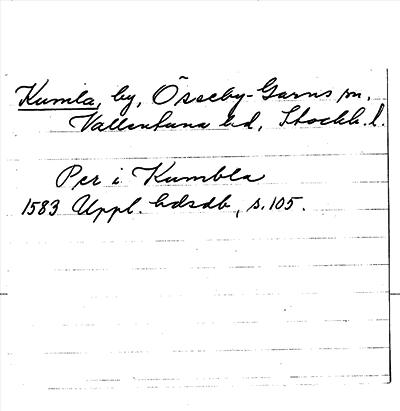 Kumla, by, Össeby-Garns sn,
Vallentuna hd, Stockh. l.
Per i Kumbla
1583 Uppl. hdsdb, s. 105.